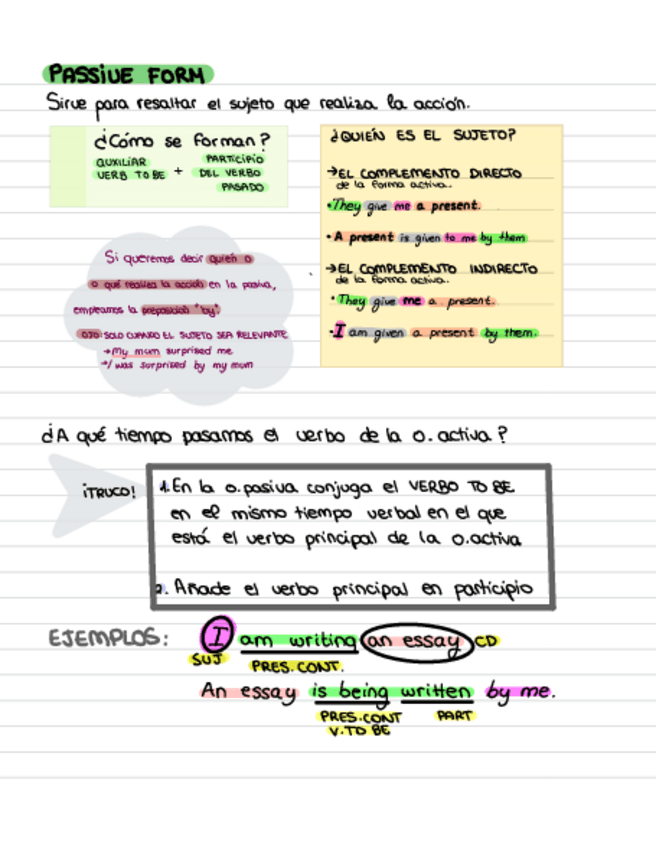 PASSIVE FORM
Sirve para resaltar el sujeto que realiza la acción.
¿Cómo se forman?
AUXILIAR VERB TO BE + PARTICIPIO DEL VERBO PASADO
¿QUIÉN ES EL SUJETO?
→EL COMPLEMENTO DIRECTO
de la forma activa.
•They give me a present.
•A present is given to me by them
→EL COMPLEMENTO INDIRECTO
de la forma activa.
•They give me a present.
•I am given a present by them.
Si queremos decir quién o
o qué realiza la acción en la pasiva,
empleamos la preposición "by"
OJO: SOLO CUANDO EL SUJETO SEA RELEVANTE
→My mum surprised me
→I was surprised by my mum
¿A qué tiempo pasamos el verbo de la o. activa?
¡TRUCO!
1.En la o.pasiva conjuga el VERBO TO BE
en el mismo tiempo verbal en el que
está el verbo principal de la o.activa
2. Añade el verbo principal en participio
EJEMPLOS: I am writing an essay CD
SUJ PRES.CONT.
An essay is being written by me.
PRES.CONT PART
V.TO BE